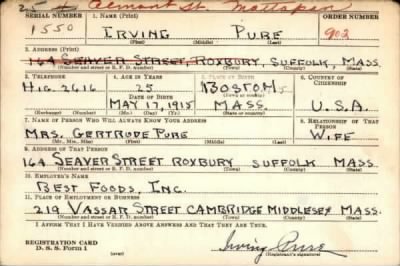 25 Clermont St. Mattapan
SERIAL NUMBER 1. NAME (Print) ORDER NUMBER
1550 IRVING PURE 902
(First) (Middle) (Last)
2. ADDRESS (Print)
164 SEAVER STREET, ROXBURY, SUFFOLK, MASS.
(Number and street or R. F. D. number) (Town) (County) (State)
3. TELEPHONE 4. AGE IN YEARS 5. PLACE OF BIRTH 6. COUNTRY OF CITIZENSHIP
HIG. 2616 25 BOSTON
DATE OF BIRTH (Town or county)
MAY 17, 1915 MASS. U.S.A.
(Exchange) (Number) (Mo.) (Day) (Yr.) (State or country)
7. NAME OF PERSON WHO WILL ALWAYS KNOW YOUR ADDRESS 8. RELATIONSHIP OF THAT PERSON
MRS. GERTRUDE PURE WIFE
(Mr., Mrs., Miss) (First) (Middle) (Last)
9. ADDRESS OF THAT PERSON
164 SEAVER STREET ROXBURY SUFFOLK MASS.
(Number and street or R. F. D. number) (Town) (County) (State)
10. EMPLOYER'S NAME
BEST FOODS, INC.
11. PLACE OF EMPLOYMENT OR BUSINESS
219 VASSAR STREET CAMBRIDGE MIDDLESEX MASS.
(Number and street or R. F. D. number) (Town) (County) (State)
I AFFIRM THAT I HAVE VERIFIED ABOVE ANSWERS AND THAT THEY ARE TRUE.
REGISTRATION CARD
D. S. S. Form 1 (over) Irving Pure
(Registrant's signature)